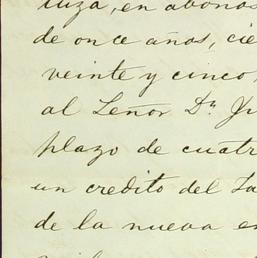 en abonos
de once años, cie
veinte y cinco,
al Señor Dn. Ju
plazo de cuatr
un credito del La
de la nueva en